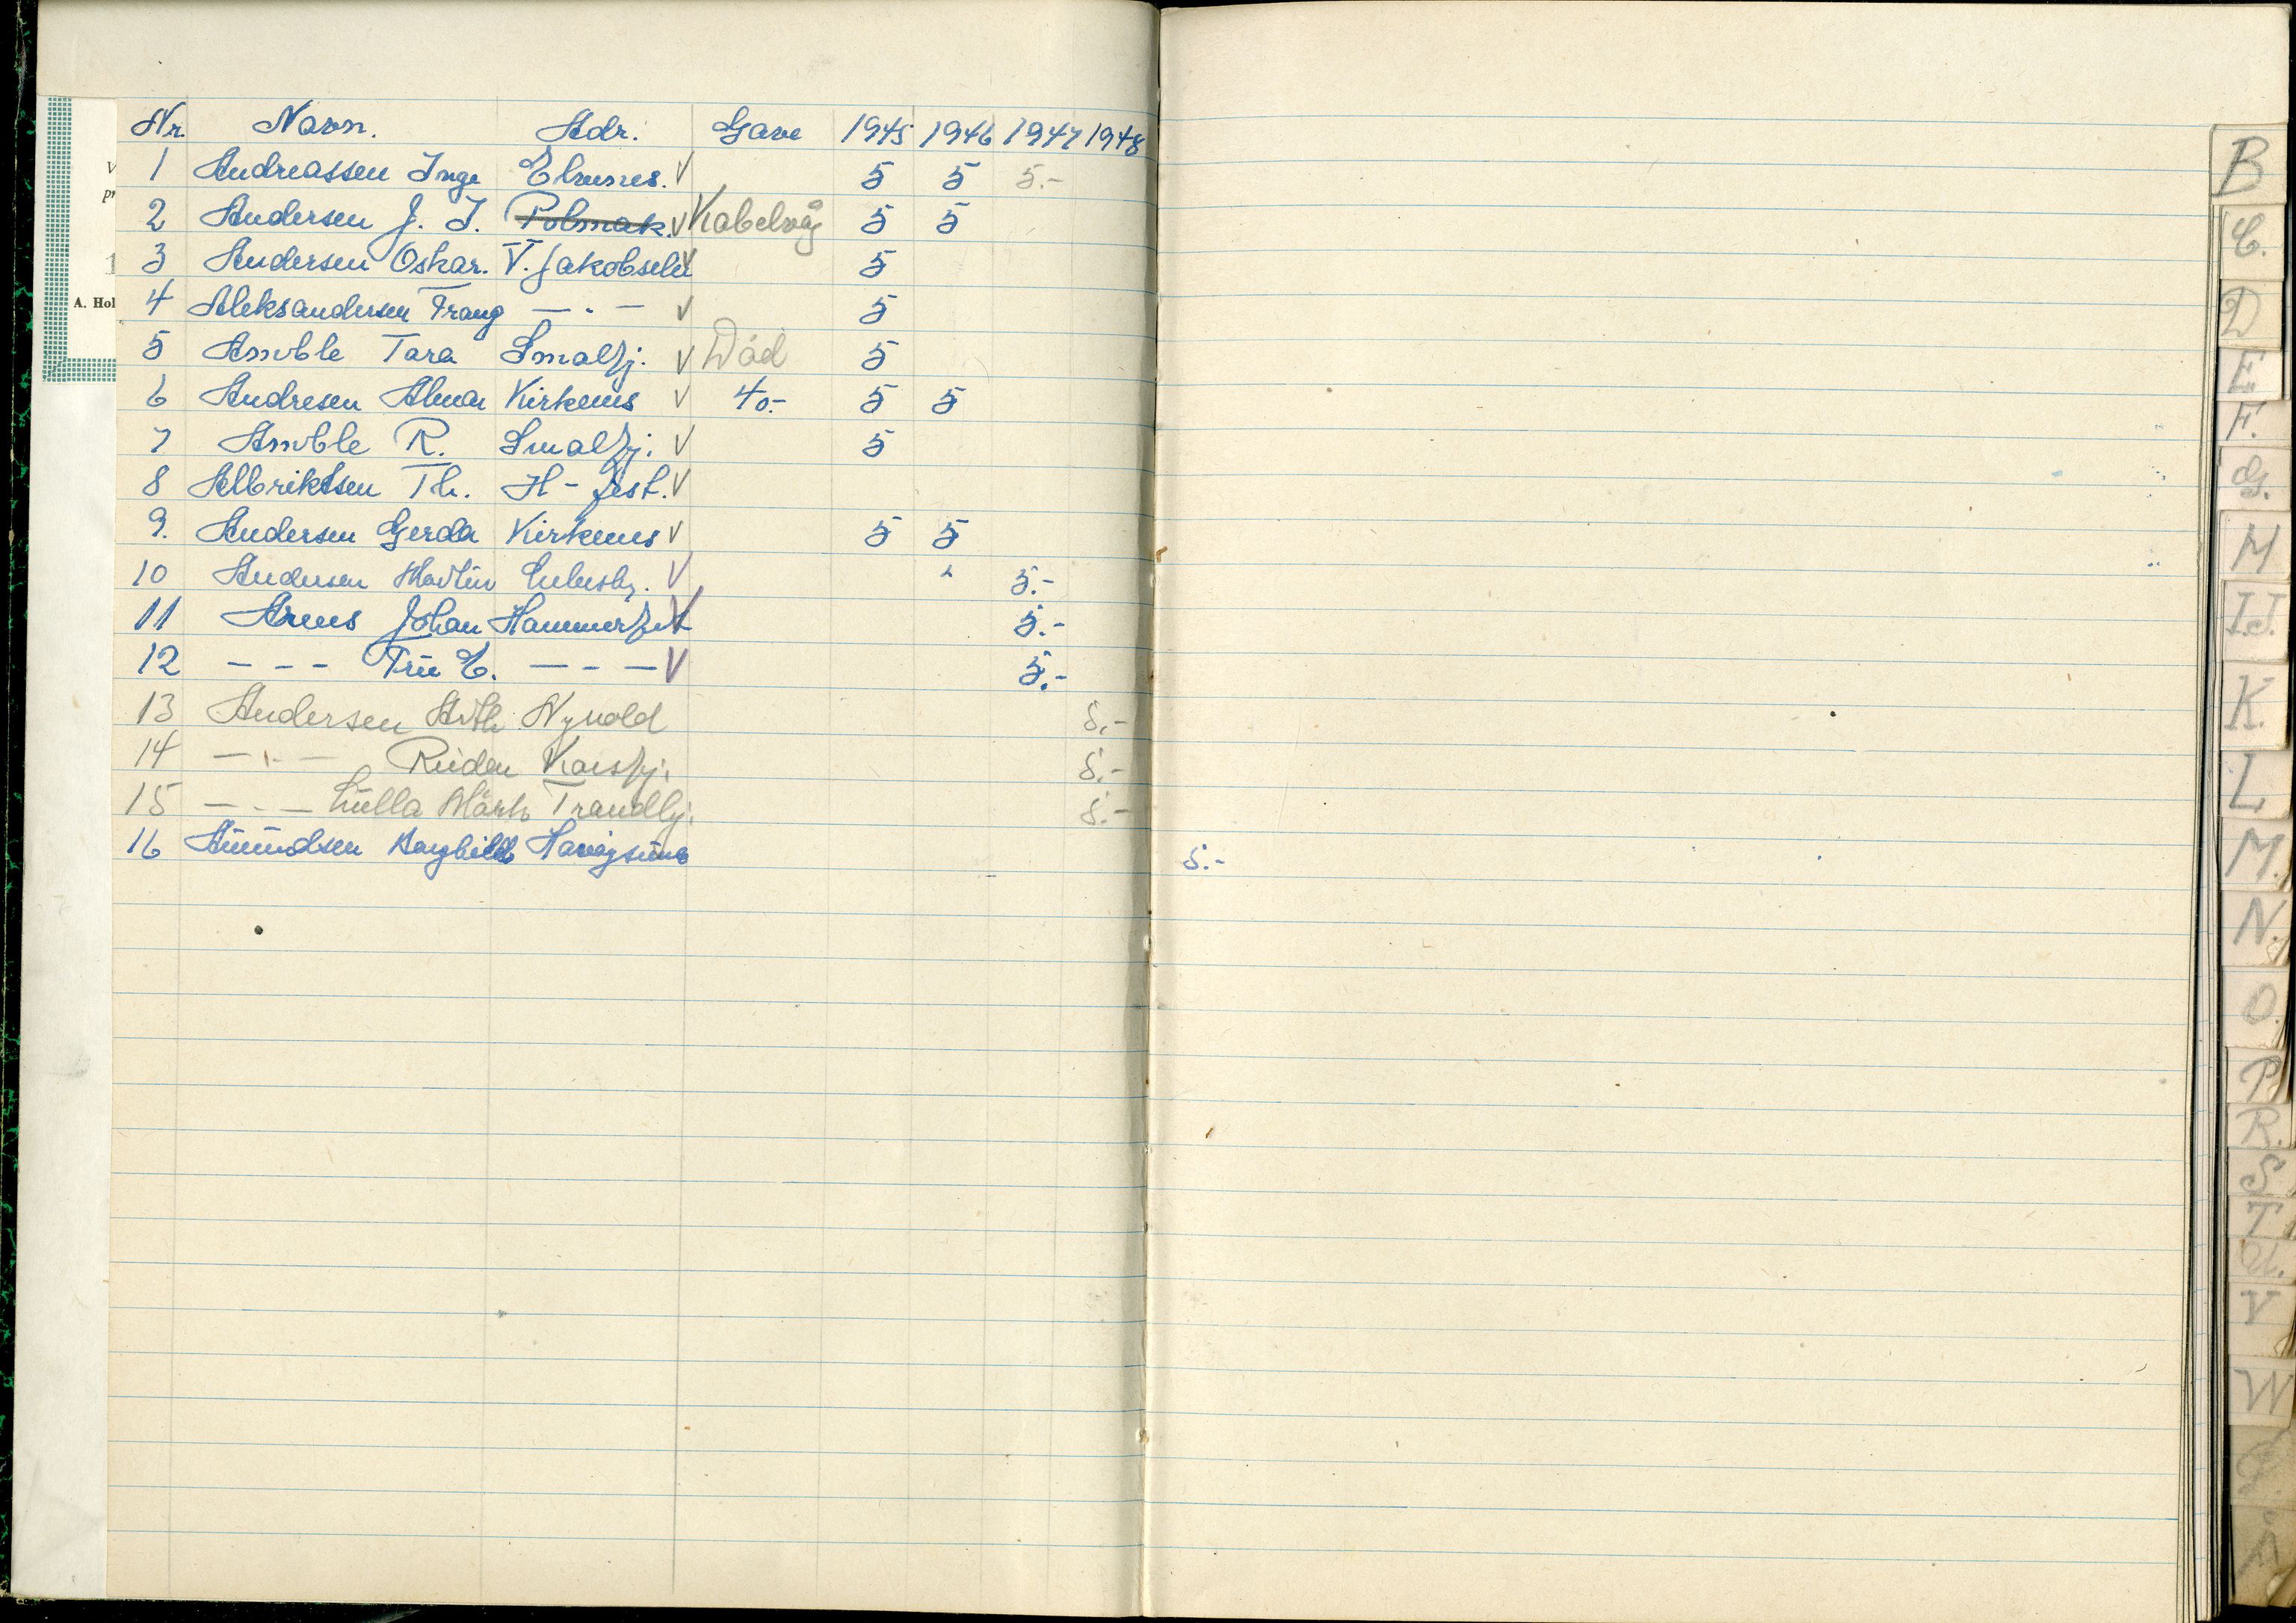 Nr. Navn. Adr. Gave 1945 1946 1947 1948
1 Andreassen Inge Elvenes. V 5 5 5.-
2 Andersen J. I. Polmak. V Kabelvåg 5 5
3 Andersen Oskar. V. Jakobselv V 5
4 Aleksandersen Frang — . — V 5
5 Amble Tara Smalfj. V Død 5
6 Andresen Almar Kirkenes V 40.- 5 5
7 Amble R. Smalfj. V 5
8 Albriktsen Th. H - fest. V
9. Andersen Gerda Kirkenes V 5 5
10 Andersen Martin V 5.-
11 Arens Johan Hammerfest V 5.-
12 - - - Fru E. — - — V 5.-
13 Andersen Arth. Nyvold 5.-
14 — . — 5.-
15 — . — Lulla 5.-
16 Amundsen Havøysund 5.-
V
pr
1
A. Hol
B
C.
D
E
F.
G.
H
I.J.
K.
L
M.
N.
O.
P
R.
S
T
U.
V
W
Ø
Å